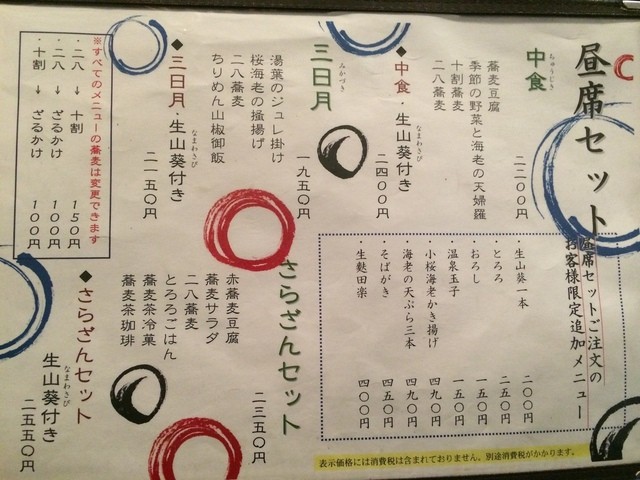 昼席セット
中食
ちゅうじき
蕎麦豆腐
季節の野菜と海老の天婦羅
十割蕎麦
二八蕎麦
二二〇〇円
◆中食・生山葵付き
なまわさび
二四〇〇円
三日月
みかづき
湯葉のジュレ掛け
桜海老の掻揚げ
二八蕎麦
ちりめん山椒御飯
一九五〇円
◆三日月・生山葵付き
なまわさび
二一五〇円
※すべてのメニューの蕎麦は変更できます
・二八 → 十割 150円
・二八 → ざるかけ 100円
・十割 → ざるかけ 100円
昼席セットご注文の
お客様限定追加メニュー
・生山葵一本 二〇〇円
・とろろ 二五〇円
・おろし 一五〇円
・温泉玉子 一五〇円
・小桜海老かき揚げ 四九〇円
・海老の天ぷら三本 四九〇円
・そばがき 四五〇円
・生麩田楽 四〇〇円
さらざんセット
赤蕎麦豆腐
蕎麦サラダ
二八蕎麦
とろろごはん
蕎麦茶冷菓
蕎麦茶珈琲
二三五〇円
◆さらざんセット
生山葵付き
なまわさび
二五五〇円
表示価格には消費税は含まれておりません。別途消費税がかかります。